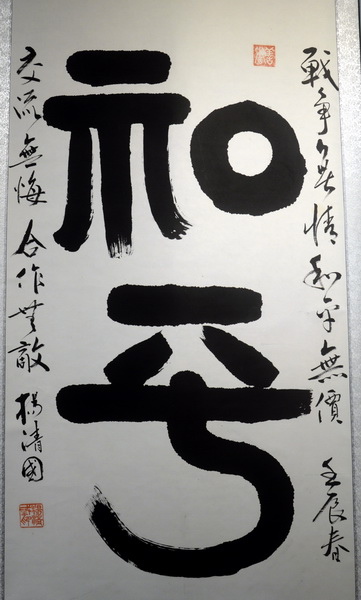 戦争無情和平無價 壬辰春
和平
交流無悔 合作無敵 楊清國